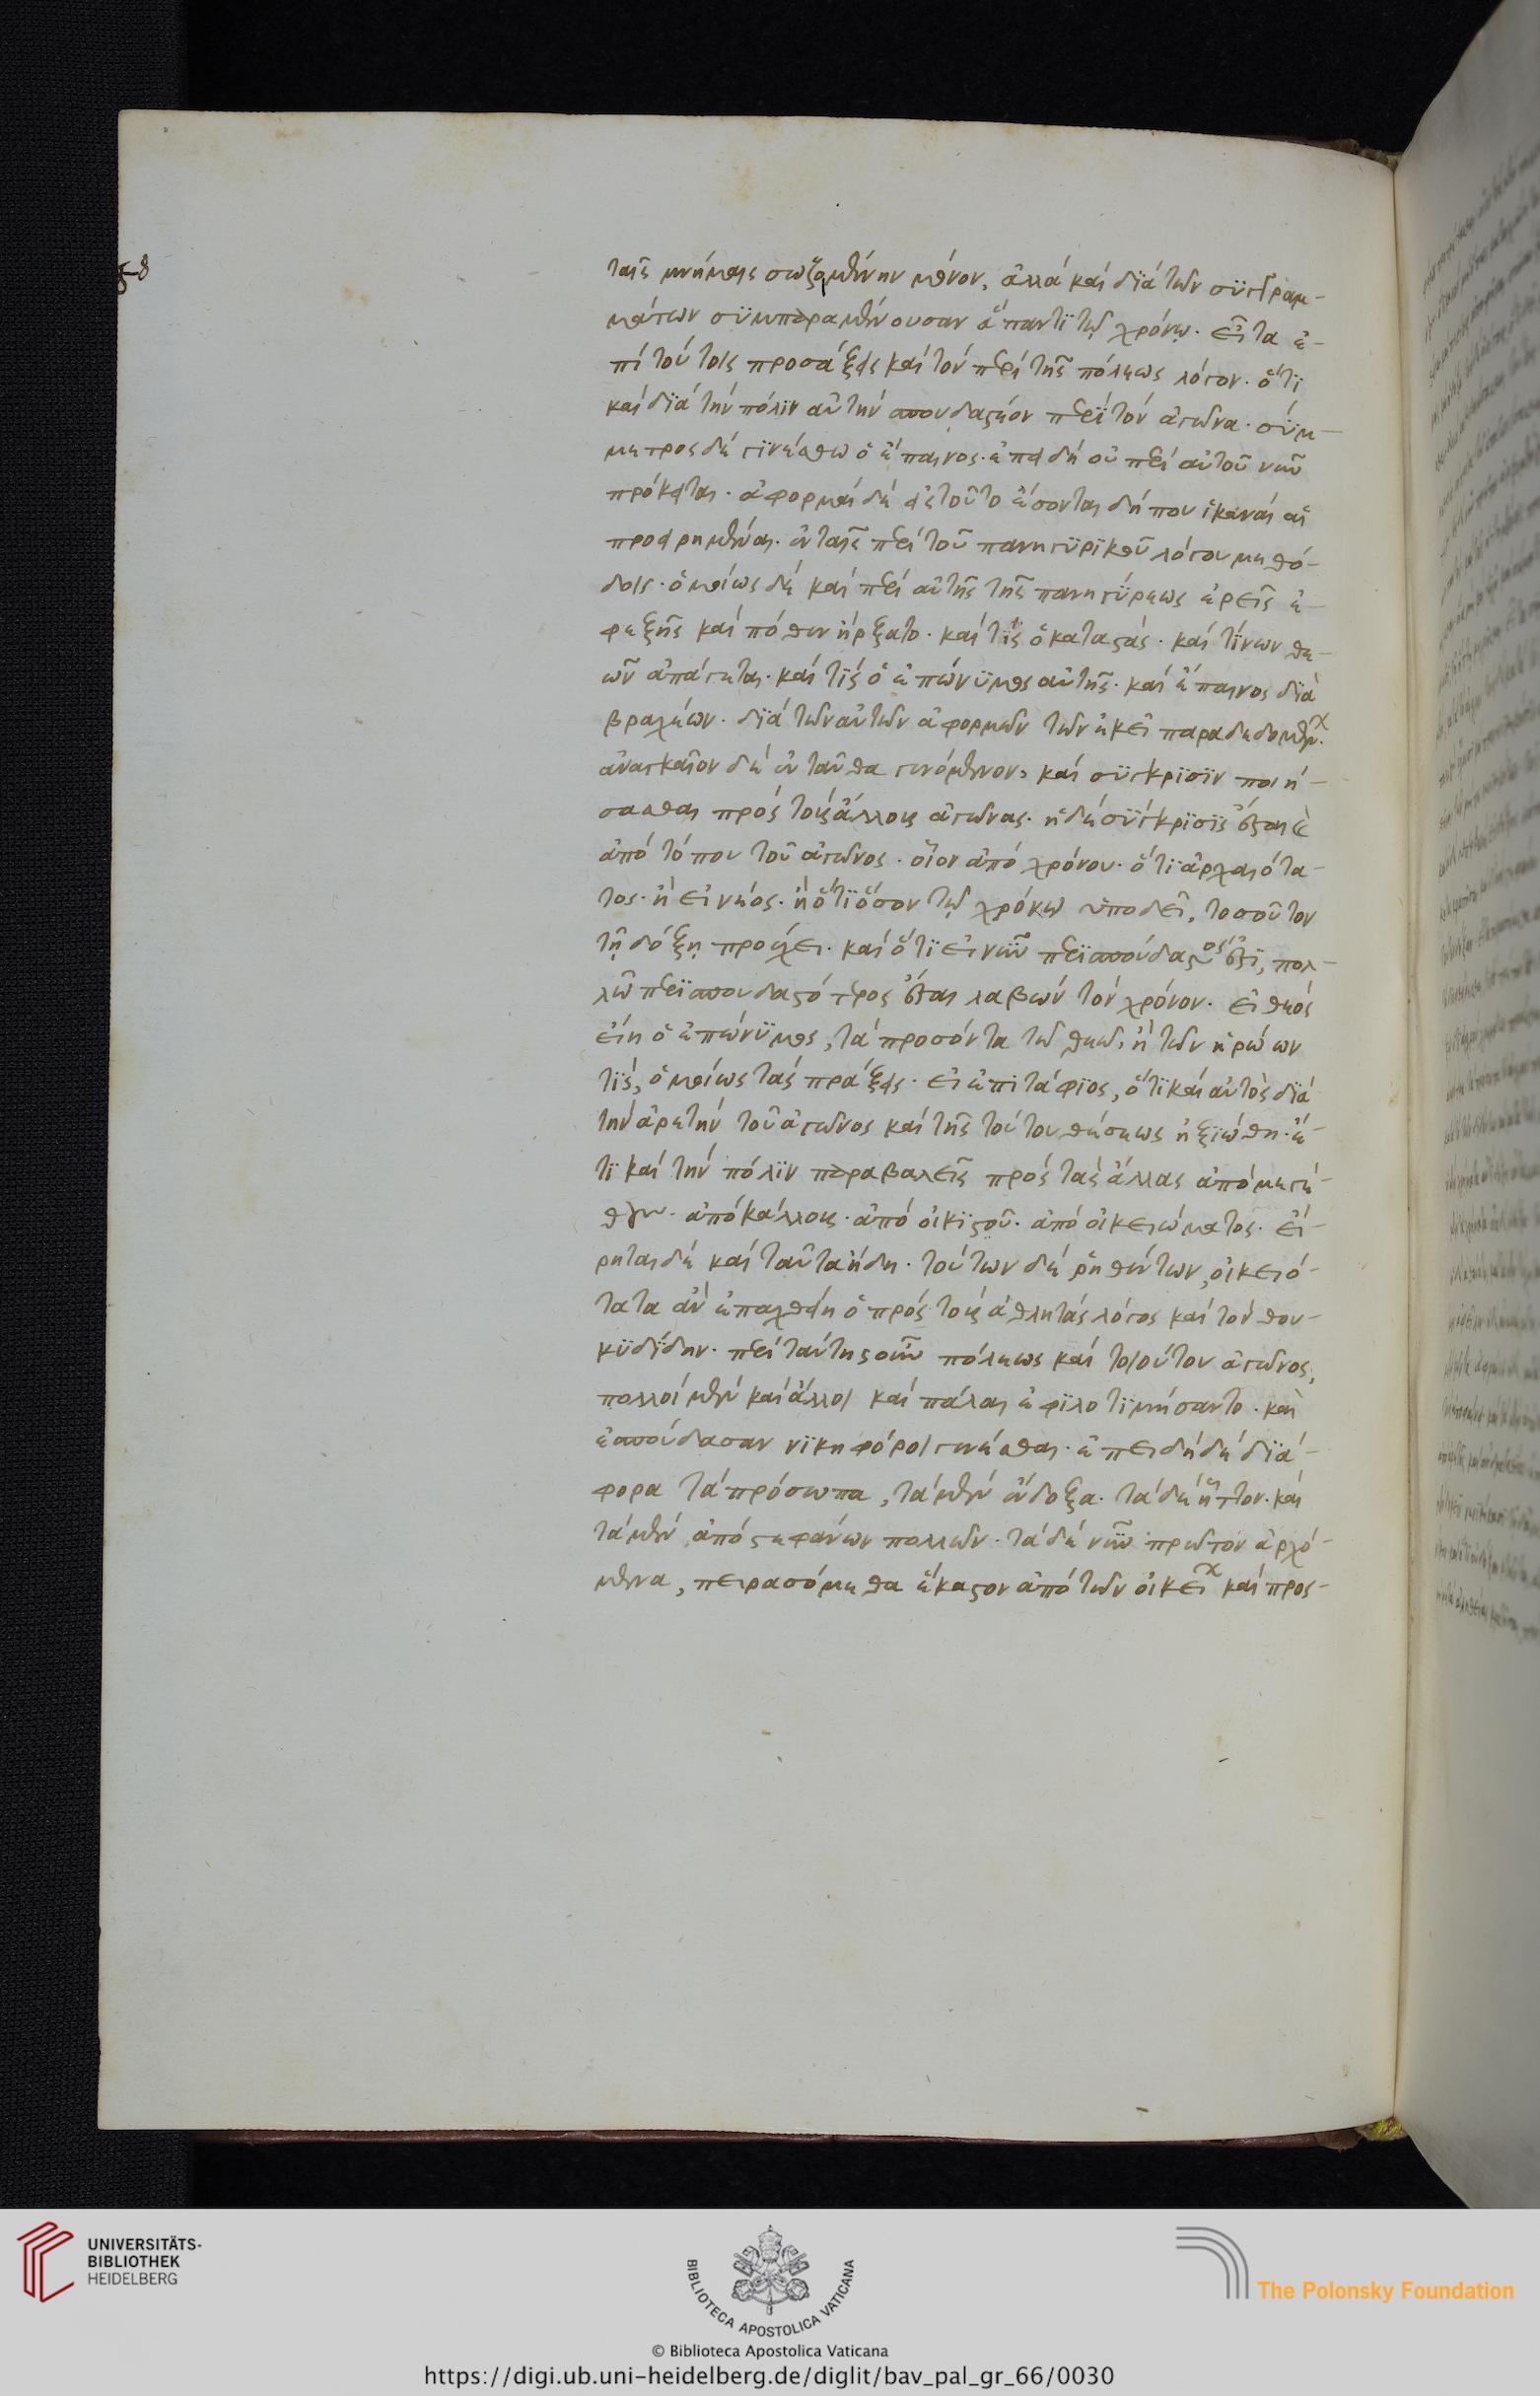 ταῖς μνήμαις σωζομένην μόνον, ἀλλὰ καὶ διὰ τῶν συγγραμ-
μάτων συμπαραμένουσαν ἅπαντι τῷ χρόνῳ. εἶτα ἐ-
πὶ τούτοις προσάξεις καὶ τὸν περὶ τῆς πόλεως λόγον. ὅτι
καὶ διὰ τὴν πόλιν αὐτὴν σπουδαστέον περὶ τὸν ἀγῶνα. σύμ-
μετρος δὲ γινέσθω ὁ ἔπαινος. ἐπειδὴ οὐ περὶ αὐτοῦ νῦν
πρόκειται. ἀφορμαὶ δὲ εἰς τοῦτο ἔσονται δήπου ἱκαναὶ αἱ
προειρημέναι. ἐν ταῖς περὶ τοῦ πανηγυρικοῦ λόγου μεθό-
δοις. ὁμοίως δὲ καὶ περὶ αὐτῆς τῆς πανηγύρεως ἐρεῖς ἐ-
φεξῆς καὶ πόθεν ἤρξατο. καὶ τίς ὁ καταστάς. καὶ τίνων θε-
ῶν ἀπάγεται. καὶ τίς ὁ ἐπώνυμος αὐτῆς. καὶ ἔπαινος διὰ
βραχέων. διὰ τῶν αὐτῶν ἀφορμῶν τῶν ἐκεῖ παραδεδομέν.
ἀναγκαῖον δὲ ἐνταῦθα γενόμενον, καὶ σύγκρισιν ποιή-
σασθαι πρὸς τοὺς ἄλλους ἀγῶνας. ἡ δὲ σύγκρισις ἔσται ἢ
ἀπὸ τόπου τοῦ ἀγῶνος. οἷον ἀπὸ χρόνου. ὅτι ἀρχαιότα-
τος. ἢ εἰ νέος. ἢ ὅτι ὅσον τῷ χρόνῳ ὑποδεῖ, τοσοῦτον
τῇ δόξῃ προέχει. καὶ ὅτι εἰ νῦν περισπούδαστός ἐστι, πολ-
λῷ περισπουδαστότερος ἔσται λαβὼν τὸν χρόνον. εἰ θεὸς
εἴη ὁ ἐπώνυμος, τὰ προσόντα τῷ θεῷ, ἢ τῶν ἡρώων
τίς, ὁμοίως τὰς πράξεις. εἰ ἐπιτάφιος, ὅτι καὶ αὐτὸς διὰ
τὴν ἀρετὴν τοῦ ἀγῶνος καὶ τῆς τούτου θέσεως ἠξιώθη. ἔ-
τι καὶ τὴν πόλιν παραβαλεῖς πρὸς τὰς ἄλλας ἀπὸ μεγέ-
θους. ἀπὸ κάλλους. ἀπὸ οἰκιστοῦ. ἀπὸ οἰκειώματος. εἴ-
ρηται δὲ καὶ ταῦτα ἤδη. τούτων δὲ ῥηθέντων, οἰκειό-
τατα ἂν ἐπαχθείη ὁ πρὸς τοὺς ἀθλητὰς λόγος κατὰ τὸν θου-
κυδίδην. περὶ ταύτης οὖν πόλεως καὶ τοιούτου ἀγῶνος,
πολλοὶ μὲν καὶ ἄλλοι καὶ πάλαι ἐφιλοτιμήσαντο. καὶ
ἐσπούδασαν νικηφόροι γενέσθαι. ἐπειδὴ δὲ διά-
φορα τὰ πρόσωπα, τὰ μὲν ἔνδοξα. τὰ δὲ ἧττον. καὶ
τὰ μὲν ἀπὸ στεφάνων πολλῶν. τὰ δὲ νῦν πρῶτον ἀρχό-
μενα, πειρασόμεθα ἕκαστον ἀπὸ τῶν οἰκεί καὶ προς-
UNIVERSITÄTS-
BIBLIOTHEK
HEIDELBERG
BIBLIOTECA APOSTOLICA VATICANA
© Biblioteca Apostolica Vaticana
The Polonsky Foundation
https://digi.ub.uni-heidelberg.de/diglit/bav_pal_gr_66/0030